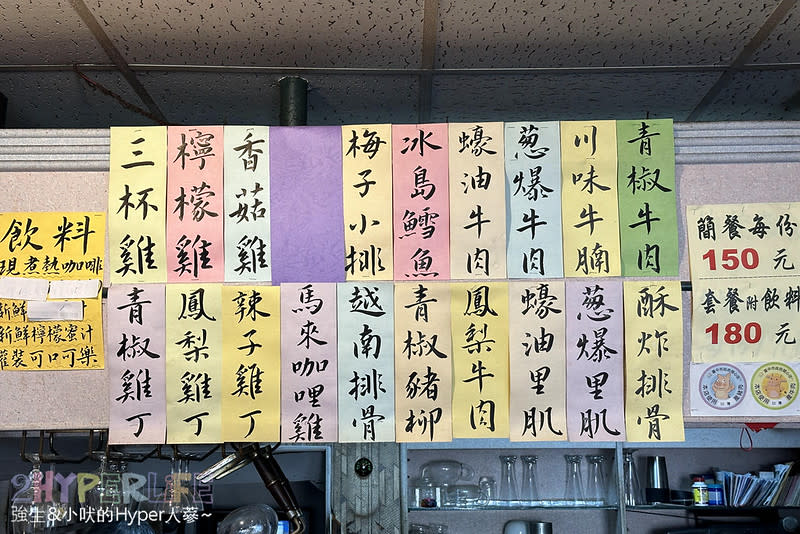 三杯雞
檸檬雞
香菇雞
梅子小排
冰島鱈魚
蠔油牛肉
葱爆牛肉
川味牛腩
青椒牛肉
青椒雞丁
鳳梨雞丁
辣子雞丁
馬來咖哩雞
越南排骨
青椒豬柳
鳳梨牛肉
蠔油里肌
葱爆里肌
酥炸排骨
飲料
現煮熱咖啡
新鮮
新鮮檸檬蜜汁
罐裝可口可樂
簡餐每份
150元
套餐附飲料
180元
2HYPERLIFE
強生&小吠的Hyper人蔘~